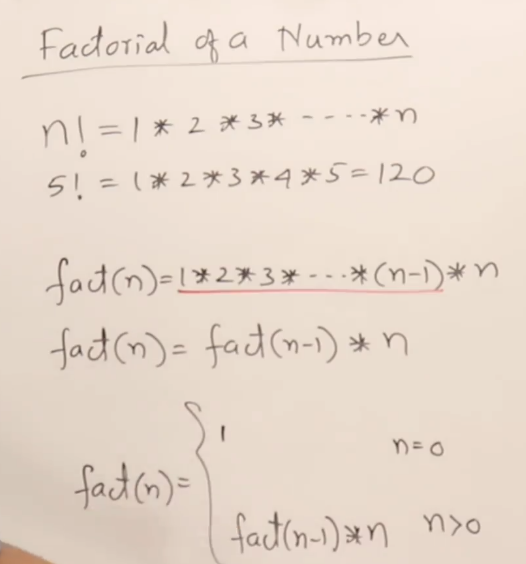 Factorial of a Number
n! = 1 * 2 * 3 * - - - - * n
5! = 1 * 2 * 3 * 4 * 5 = 120
fact(n) = 1 * 2 * 3 * - - - * (n-1) * n
fact(n) = fact(n-1) * n
1 n=0
fact(n) = {
fact(n-1) * n n>0